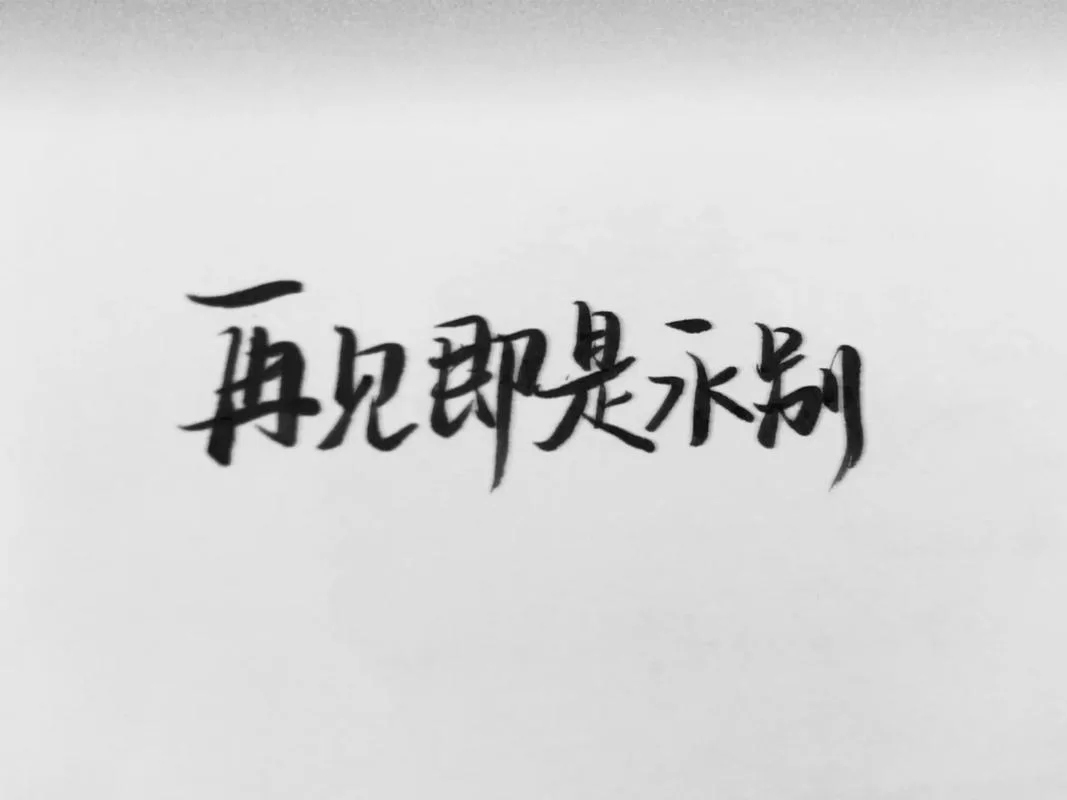 再见即是永别